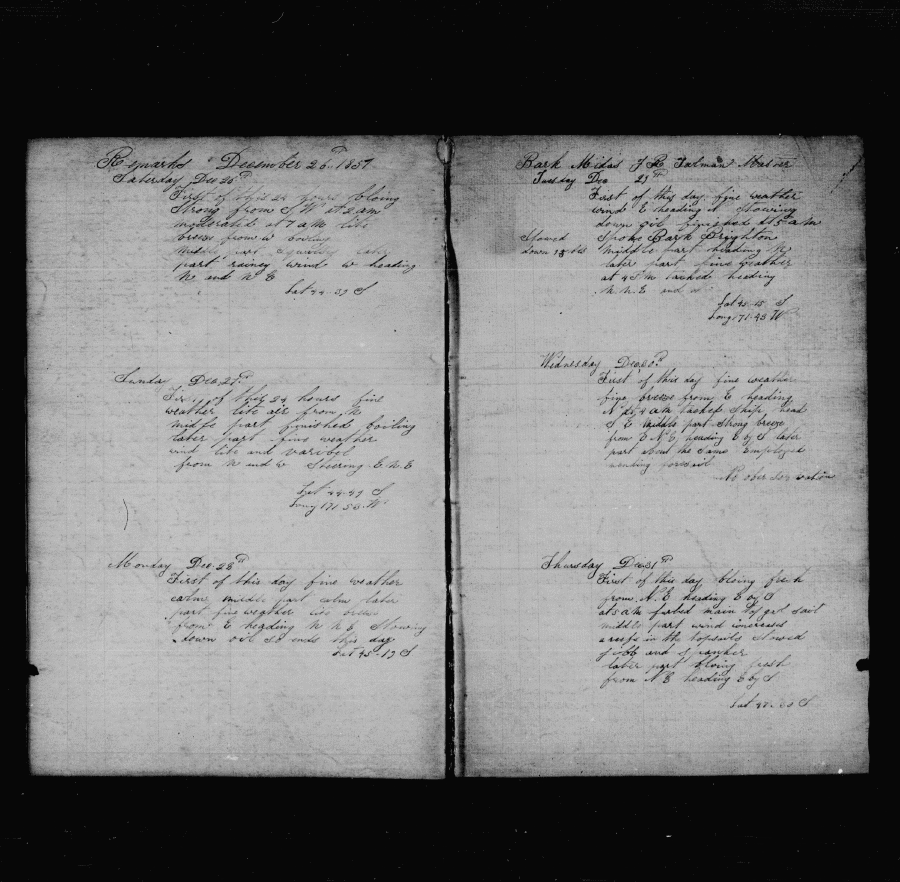 Remarks December 26th 1857
Saturday Dec 26th
First of this 24 hours bloing
strong from S W at 2 am
moderated at 7 am lite
breese from W boiling
middle part squaley later
part rainey wind W heading
N and N E
Lat 44-39 S
Sunday Dec 27th
First of this 24 hours fine
weather lite air from N
middle part finished boiling
later part fine weather
wind lite and varibel
from N and W Steering E.N.E
Lat 44-49 S
Long 171-53 W
Monday Dec 28th
First of this day fine weather
calm middle part calm later
part fine weather lite breese
from E heading N N E Stowing
down oil So ends this day
Lat 45-19 S
Bark Midas J R Talman Master
Tuesday Dec 29th
First of this day fine weather
wind E heading N Stowing
down oil finished at 5 am
Stowed
down
Spoke Bark Brighton
Middle part heading N
later part fine weather
at 4 P M tacked heading
N.N.E and
Lat 45-15 S
Long 171-43 W
Wednesday Dec 30th
First of this day fine weather
fine breese from E heading
N at 4 am tacked Ship head
S E Middle part Strong breese
from E N E heading E by S later
part about the Same Employed
mending foresail
No obersorvation
Thursday Dec 31th
First of this day bloing fresh
from N.E heading E by S
at 5 am furled main top gal sail
middle part wind increased
2 reefs in the topsails stowed
jibb and spanker
later part bloing fresh
from N E heading E by S
Lat S